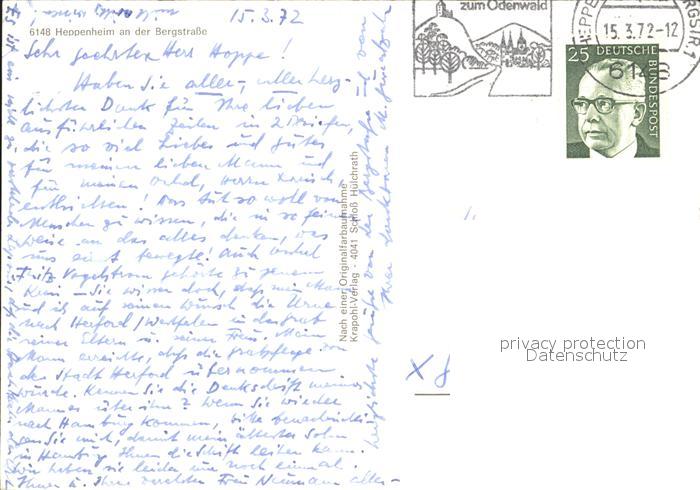 15.3.72
6148 Heppenheim an der Bergstraße
Sehr geehrter Herr Hoppe!
Haben Sie aller-, allerherz-
lichsten Dank für Ihre lieben
ausführlichen Zeilen in 2 Briefen,
die so viel Liebes und Gutes
für meinen lieben Mann und
für meinen Onkel, Herrn
enthielten! Das tut so wohl von
Menschen zu wissen, die in so feiner
Weise an das alles denken, was
uns einst bewegte! Auch Onkel
Fritz gehörte zu jenem
Kreis – Sie wissen doch, daß mein Mann
und ich auf seinen Wunsch die Urne
nach Herford/Westfalen in das Grab
seiner Eltern u. seiner Frau. Mein
Mann erreichte, daß die Grabpflege von
der Stadt Herford übernommen
wurde. Kennen Sie die Denkschrift meines
Mannes über ihn? Wenn Sie wieder
nach Hamburg kommen, bitte benachrichti-
gen Sie mich, damit mein ältester Sohn
in Hamburg Ihnen die Schrift leihen kann.
Wir haben sie leider nur noch einmal.
Ihnen u. Ihrer verehrten Frau aller-
herzlichste Grüße von der Bergstraße und von
Ihrer
Nach einer Originalfarbaufnahme
Krapohl-Verlag · 4041 Schloß Hülchrath
zum Odenwald
HEPPE
15.3.72-12
6148
1
25 DEUTSCHE
BUNDESPOST
privacy protection
Datenschutz
X 8